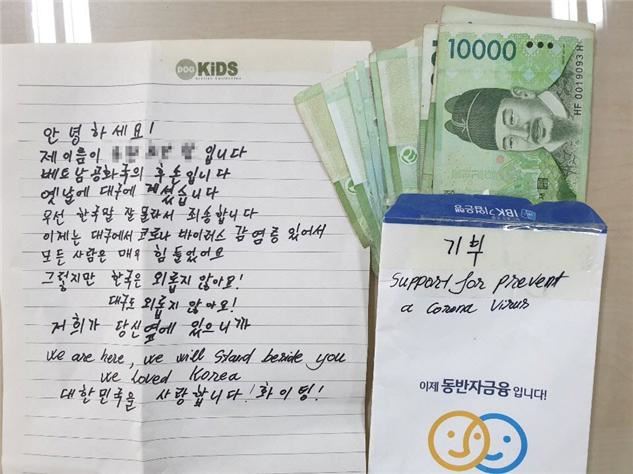 DOG KiDS
안녕하세요!
제 이름이 입니다
베트남공화국의 후손입니다
옛날에 대구에 계셨습니다
우선 한국말 잘 몰라서 죄송합니다
이제는 대구에서 코로나 바이러스 감염증 있어서
모든 사람은 매우 힘들었어요
그렇지만 한국은 외롭지 않아요!
대구도 외롭지 않아요!
저희가 당신옆에 있으니까
we are here, we will stand beside you
we loved Korea
대한민국을 사랑합니다! 화이팅!
10000
HF 0019093 H
IBK기업은행
기부
Support for prevent
a corona virus
이제 동반자금융입니다!